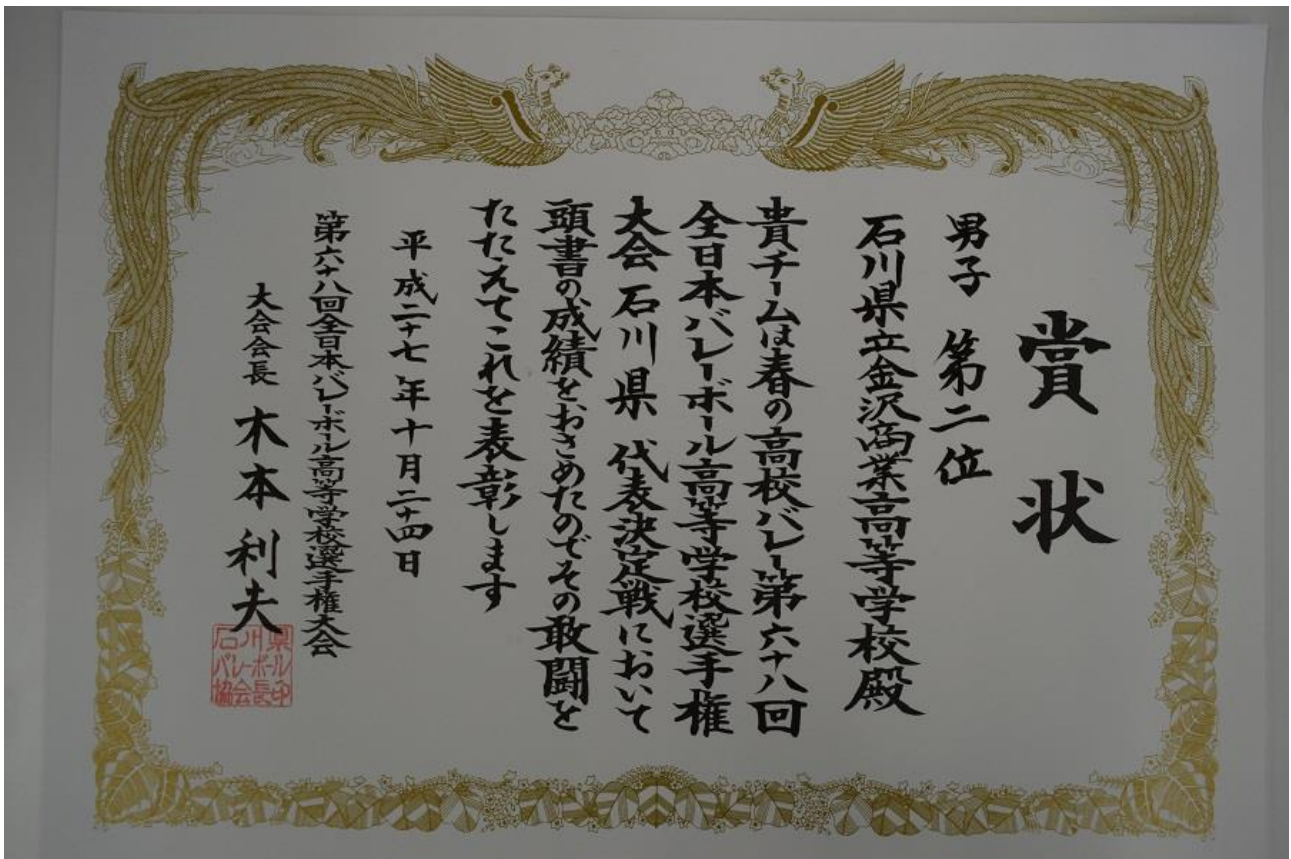 賞状
男子 第二位
石川県立金沢商業高等学校殿
貴チームは春の高校バレー第六十八回
全日本バレーボール高等学校選手権
大会 石川県 代表決定戦において
頭書の成績をおさめたのでその敢闘を
たたえてこれを表彰します
平成二十七年十月二十四日
第六十八回全日本バレーボール高等学校選手権大会
大会会長 木本利夫
石川県
バレーボール
協会長印